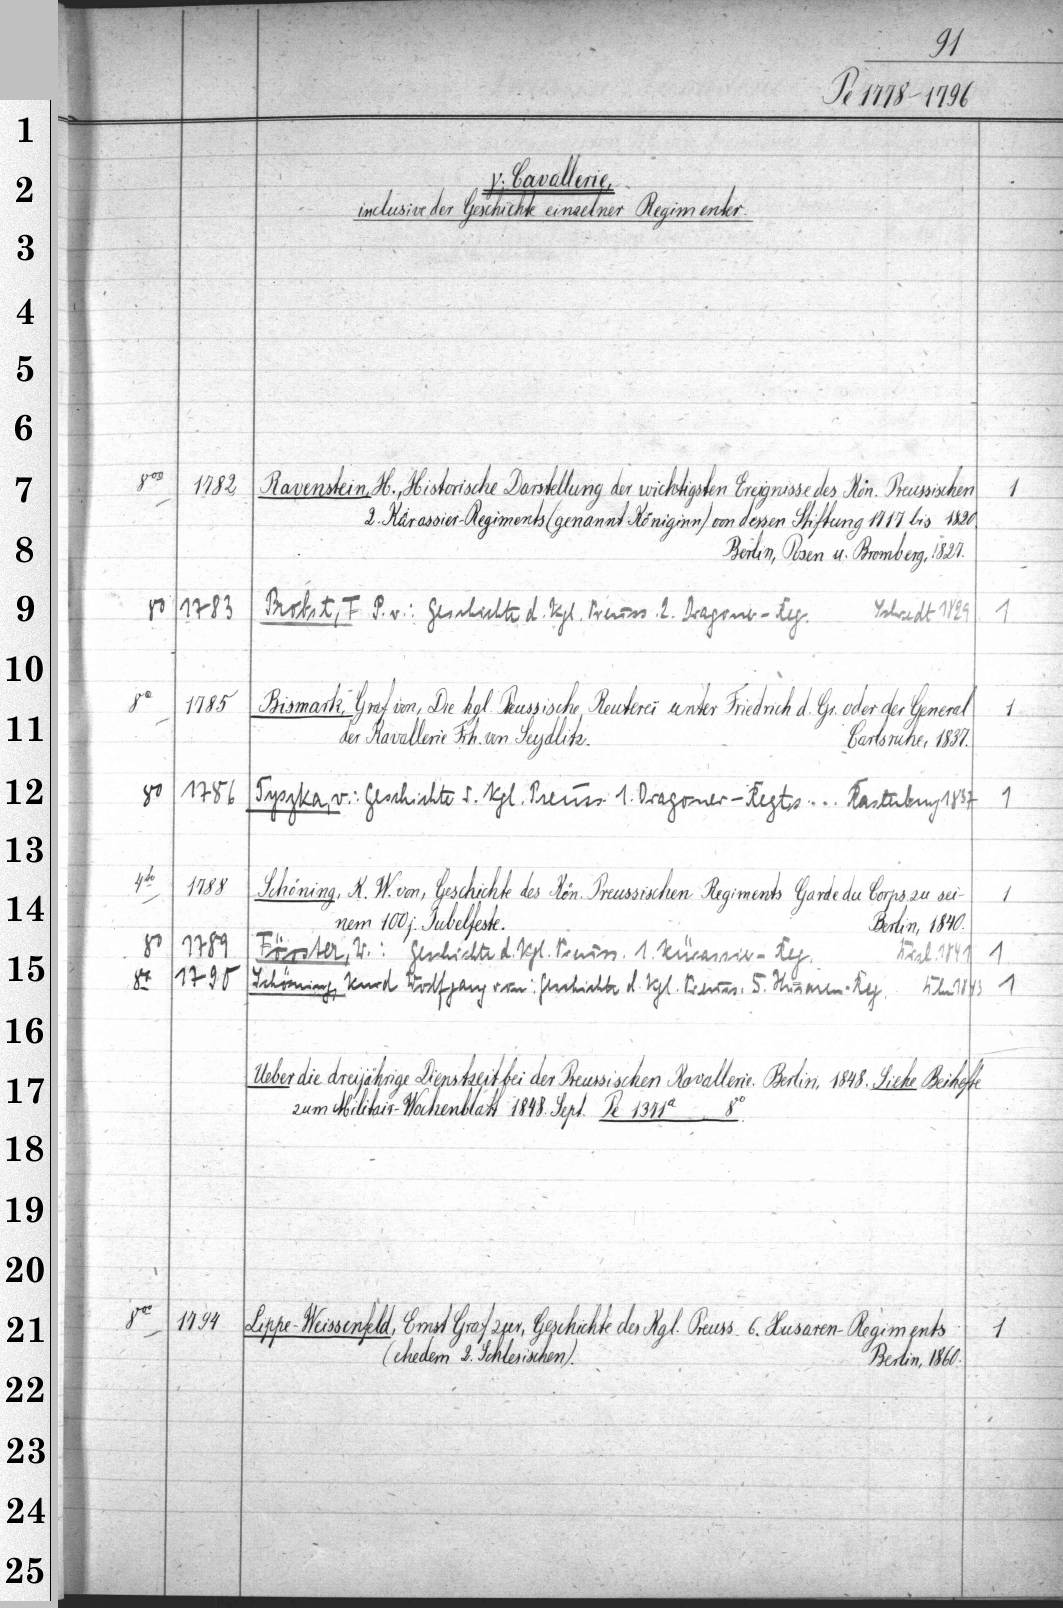 91
Pe 1778-1796
1
2
3
4
5
6
7
8
9
10
11
12
13
14
15
16
17
18
19
20
21
22
23
24
25
γ. Cavallerie,
inclusive der Geschichte einzelner Regimenter.
8vo 1782 Ravenstein, H., Historische Darstellung der wichtigsten Ereignisse des Kön. Preussischen 1
2. Kürassier-Regiments (genannt Königinn) von dessen Stiftung 1717 bis 1820.
Berlin, Posen u. Bromberg, 1827.
8o 1783 Probst, F P. v.: Geschichte d. Kgl. Preuss. 2. Dragoner-Reg. Schwedt 1829 1
8o 1785 Bismark, Graf von, Die kgl. Preussische Reuterei unter Friedrich d. Gr. oder der General 1
der Kavallerie Frh. von Seydlitz. Carlsruhe, 1837.
8o 1786 Tyszka, v.: Geschichte d. Kgl. Preuss. 1. Dragoner-Regts ... Rastenburg 1837 1
4to 1788 Schöning, K. W. von, Geschichte des Kön. Preussischen Regiments Garde du Corps zu sei- 1
nem 100j. Jubelfeste. Berlin, 1840.
8o 1789 Förster, W.: Geschichte d. Kgl. Preuss. 1. Kürassier-Reg. Bresl. 1841 1
8o 1790 Schöning, Kurd Wolfgang von: Geschichte d. Kgl. Preuss. 5. Husaren-Reg. Blln 1843 1
Ueber die dreijährige Dienstzeit bei der Preussischen Kavallerie. Berlin, 1848. Siehe Beihefte
zum Militair-Wochenblatt 1848. Sept. Pe 1371a 8o.
8vo 1794 Lippe-Weissenfeld, Ernst Graf zur, Geschichte des Kgl. Preuss. 6. Husaren-Regiments 1
(ehedem 2. Schlesischen). Berlin, 1860.